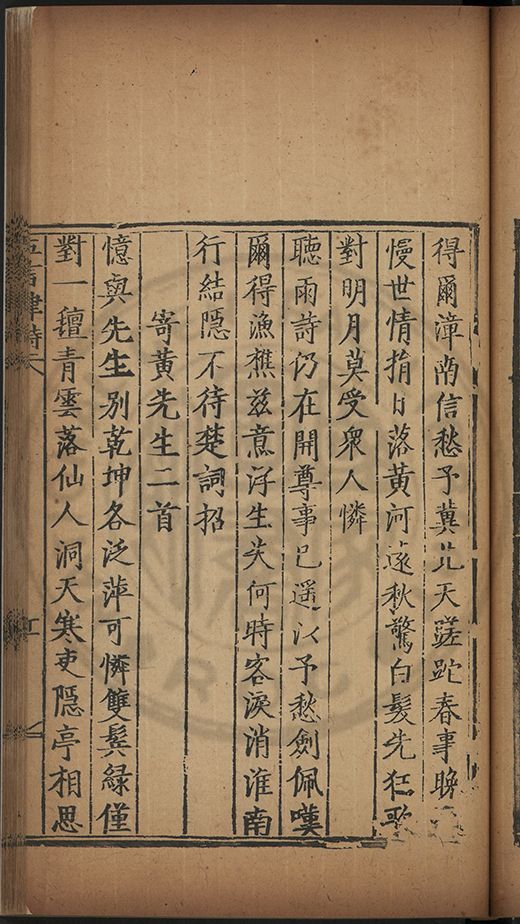 得爾漳南信愁予冀北天蹉跎春事晚
慢世情捐日落黃河遠秋驚白髮先狂歌
對明月莫受衆人憐
聽雨詩仍在開尊事已遙以予愁劍佩嘆
爾得漁樵茲意浮生失何時客淚消淮南
行結隱不待楚詞招
寄黃先生二首
憶與先生別乾坤各泛萍可憐雙鬢綠僅
對一氊青雲落仙人洞天寒吏隱亭相思
五言律詩